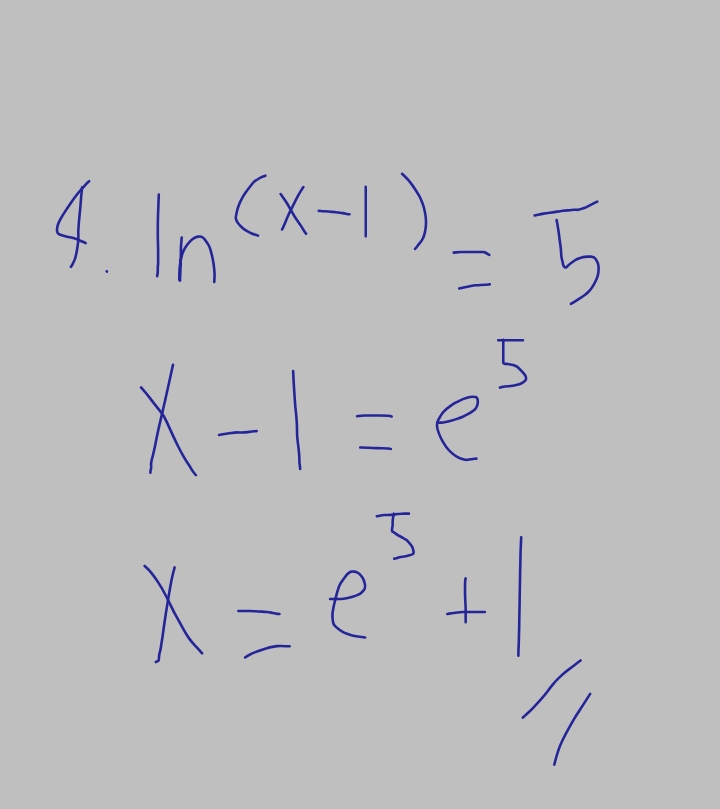 4. ln(x-1) = 5
x - 1 = e^5
x = e^5 + 1 //